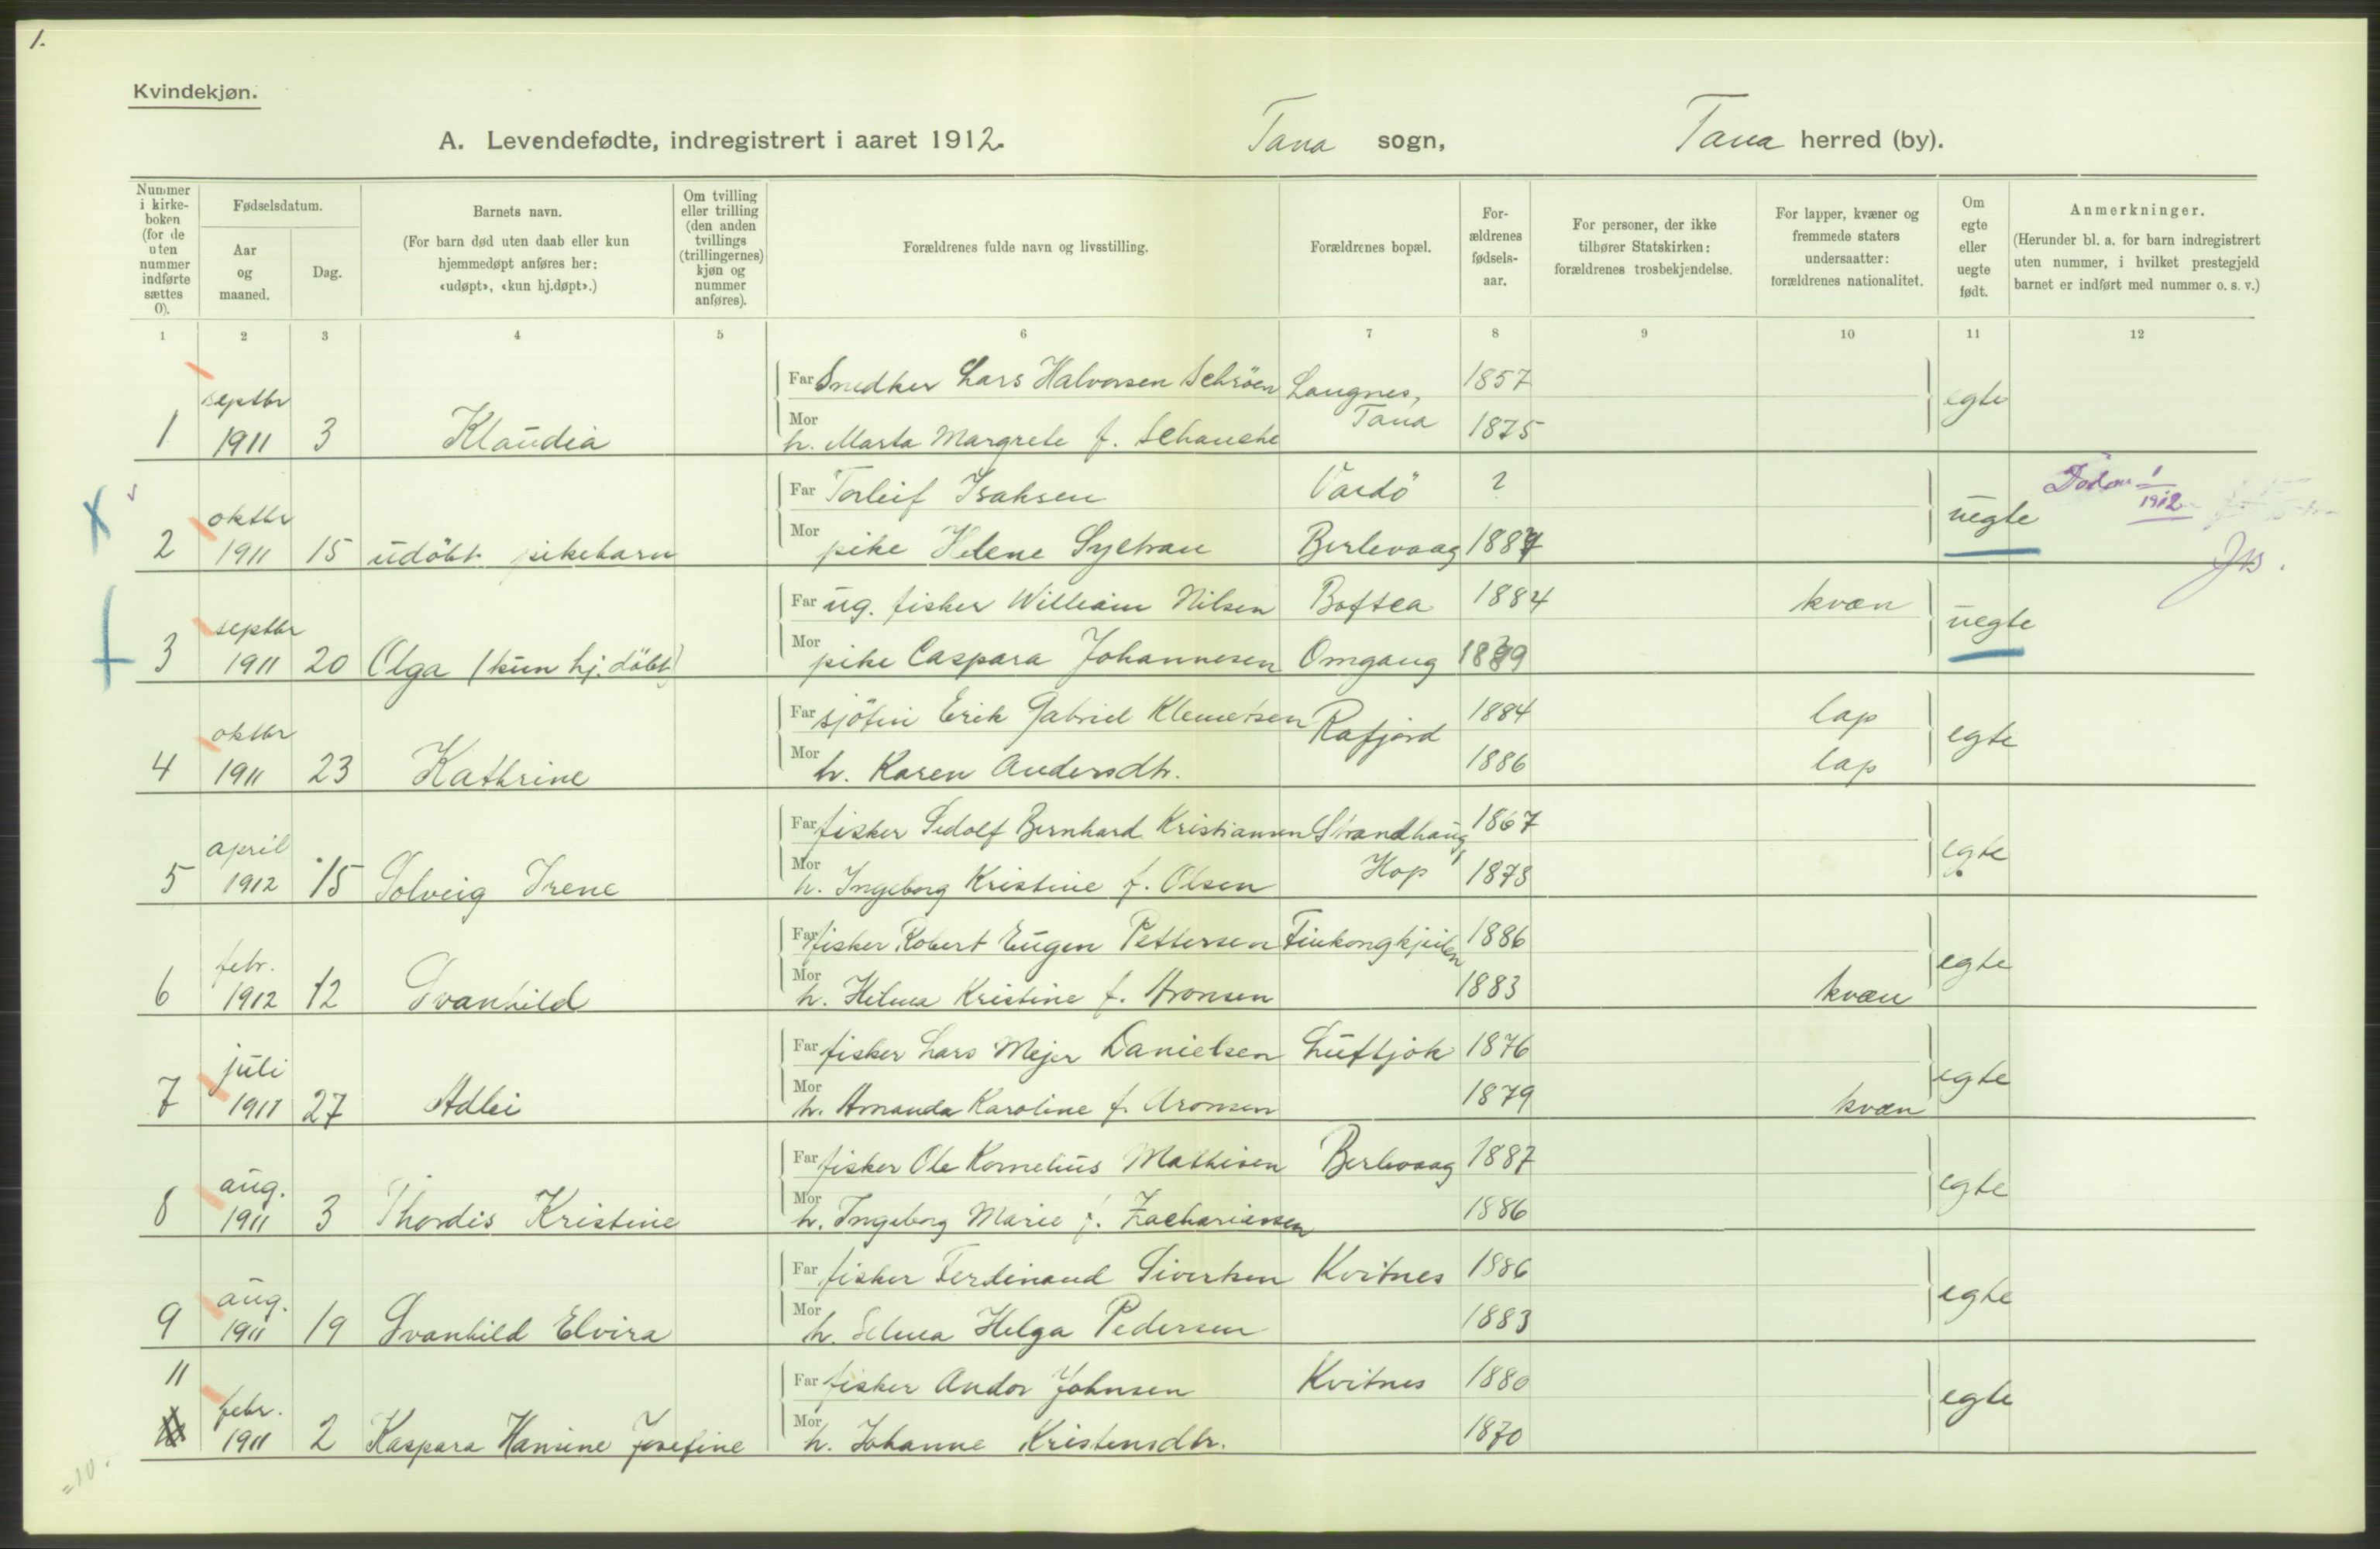 1.
Kvindekjøn.
A. Levendefødte, indregistrert i aaret 1912. Tana sogn, Tana herred (by).
Nummer i kirke-boken (for de uten nummer indførte sættes 0).
Fødselsdatum.
Aar og maaned.
Dag.
Barnets navn.
(For barn død uten daab eller kun hjemmedøpt anføres her: «udøpt», «kun hj.døpt».)
Om tvilling eller trilling (den anden tvillings (trillingernes) kjøn og nummer anføres).
Forældrenes fulde navn og livsstilling.
Forældrenes bopæl.
For-ældrenes fødsels-aar.
For personer, der ikke tilhører Statskirken: forældrenes trosbekjendelse.
For lapper, kvæner og fremmede staters undersaatter: forældrenes nationalitet.
Om egte eller uegte født.
Anmerkninger.
(Herunder bl. a. for barn indregistrert uten nummer, i hvilket prestegjeld barnet er indført med nummer o. s. v.)
1 2 3 4 5 6 7 8 9 10 11 12
Far Snedker Lars Halvorsen Schröen Langnes, 1857
septbr egte
Mor Tana
1 1911 3 Klaudia h. Marta Margrete f. Schanche 1875
Far Torleif Isaksen Vardö ?
oktbr uegte 1912
Mor
2 1911 15 udöbt pikebarn pike Helene Berlevaag 1887
Far ug. fisker William Nilsen Boftsa 1884 kvæn
septbr uegte
Mor
3 1911 20 Olga (kun hj. döbt) pike Caspara Johannesen Omgang 1889
Far Erik Gabriel Klemetsen Rafjord 1884 lap
oktbr egte
Mor
4 1911 23 Kathrine h. Karen Andersdtr. 1886 lap
Far fisker Sedolf Bernhard Kristiansen Strandhaug 1867
april egte
Mor Hop
5 1912 15 Solveig Irene h. Ingeborg Kristine f. Olsen 1873
Far fisker Robert Eugen Pettersen Finkongkjeilen 1886
febr. egte
Mor
6 1912 12 Svanhild h. Hilma Kristine f. Aronsen 1883 kvæn
Far fisker Lars Mejer Danielsen Luftjok 1876
juli egte
Mor
7 1911 27 Adlei h. Amanda Karoline f. Aronsen 1879 kvæn
Far fisker Ole Kornelius Mathisen Berlevaag 1887
aug. egte
Mor
8 1911 3 Thordis Kristine h. Ingeborg Marie f. Zachariassen 1886
Far fisker Ferdinand Sivertsen Kvitnes 1886
aug. egte
Mor
9 1911 19 Svanhild Elvira h. Selma Helga Pedersen 1883
11 Far fisker Andor Johnsen Kvitnes 1880
febr. egte
Mor
1911 2 Kaspara Hansine Josefine h. Johanne Kristensdtr. 1870
=10.